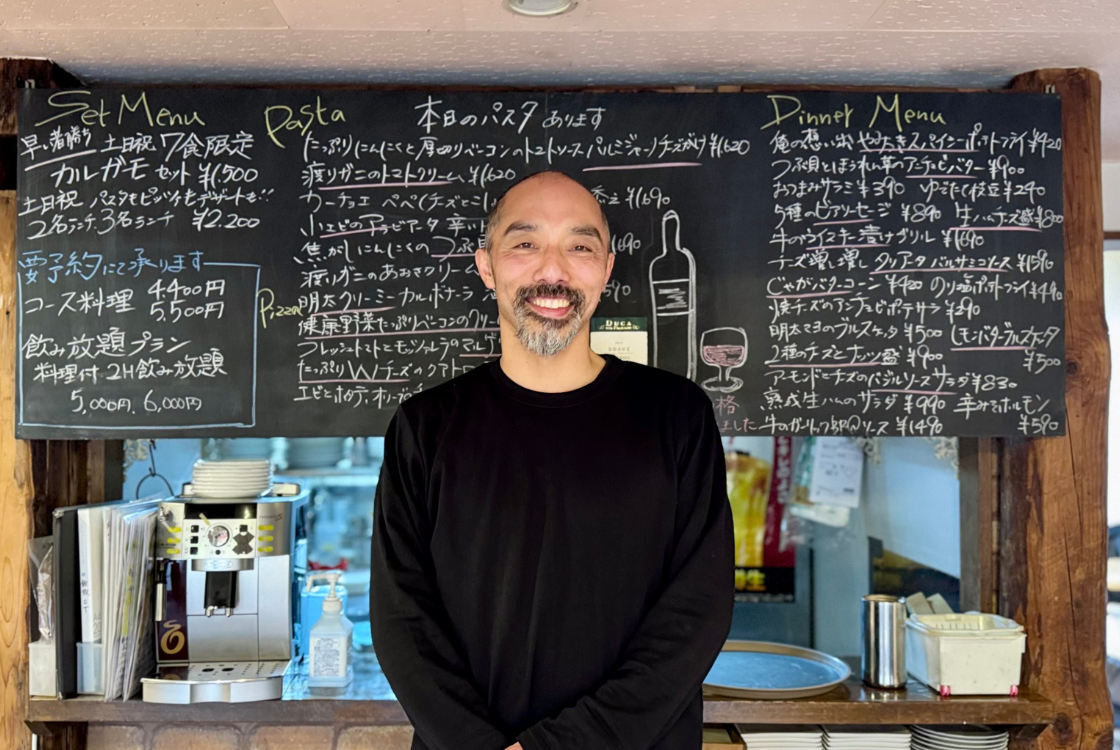 Set Menu
早い者勝ち 土日祝 7食限定
カルガモセット ¥1,500
土日祝 パスタもピッツァもデザートも!!
2名ランチ、3名ランチ ¥2,200
要予約にて承ります
コース料理 4,400円
5,500円
飲み放題プラン
料理付 2H飲み放題
5,000円、6,000円
Pasta 本日のパスタあります
たっぷりにんにくと厚切りベーコンのトマトソース パルミジャーノチーズがけ ¥1620
渡りガニのトマトクリーム ¥1620
カーチョエ ペペ (チーズとこ
¥1690
小エビのアラビアータ
焦がしにんにくの
渡りガニのあおさクリーム
Pizza
明太クリーミーカルボナーラ
健康野菜たっぷりベーコンの
フレッシュトマトとモッツァレラのマルゲ
たっぷりWチーズのクアトロ
エビとホタテ、オリーブ
DUCA
Dinner Menu
俺の想い出 やみつきスパイシーポテトフライ ¥420
つぶ貝とほうれん草のアンチョビバター ¥900
おつまみサラミ ¥390 ゆでたて枝豆 ¥290
5種のビアソーセージ ¥890 生ハムチーズ盛 ¥800
牛のウイスキー漬けグリル ¥1690
チーズ増し増し タリアータ バルサミコソース ¥1590
じゃがバターコーン ¥420 のり塩ポテトフライ ¥490
焼チーズのアンチョビポテサラ ¥290
明太マヨのブルスケッタ ¥500
¥500
2種のチーズとナッツ盛 ¥900
アーモンドとチーズのバジルソースサラダ ¥830
熟成生ハムのサラダ ¥990 辛みそホルモン
¥590
牛のガーリック
ソース ¥1490